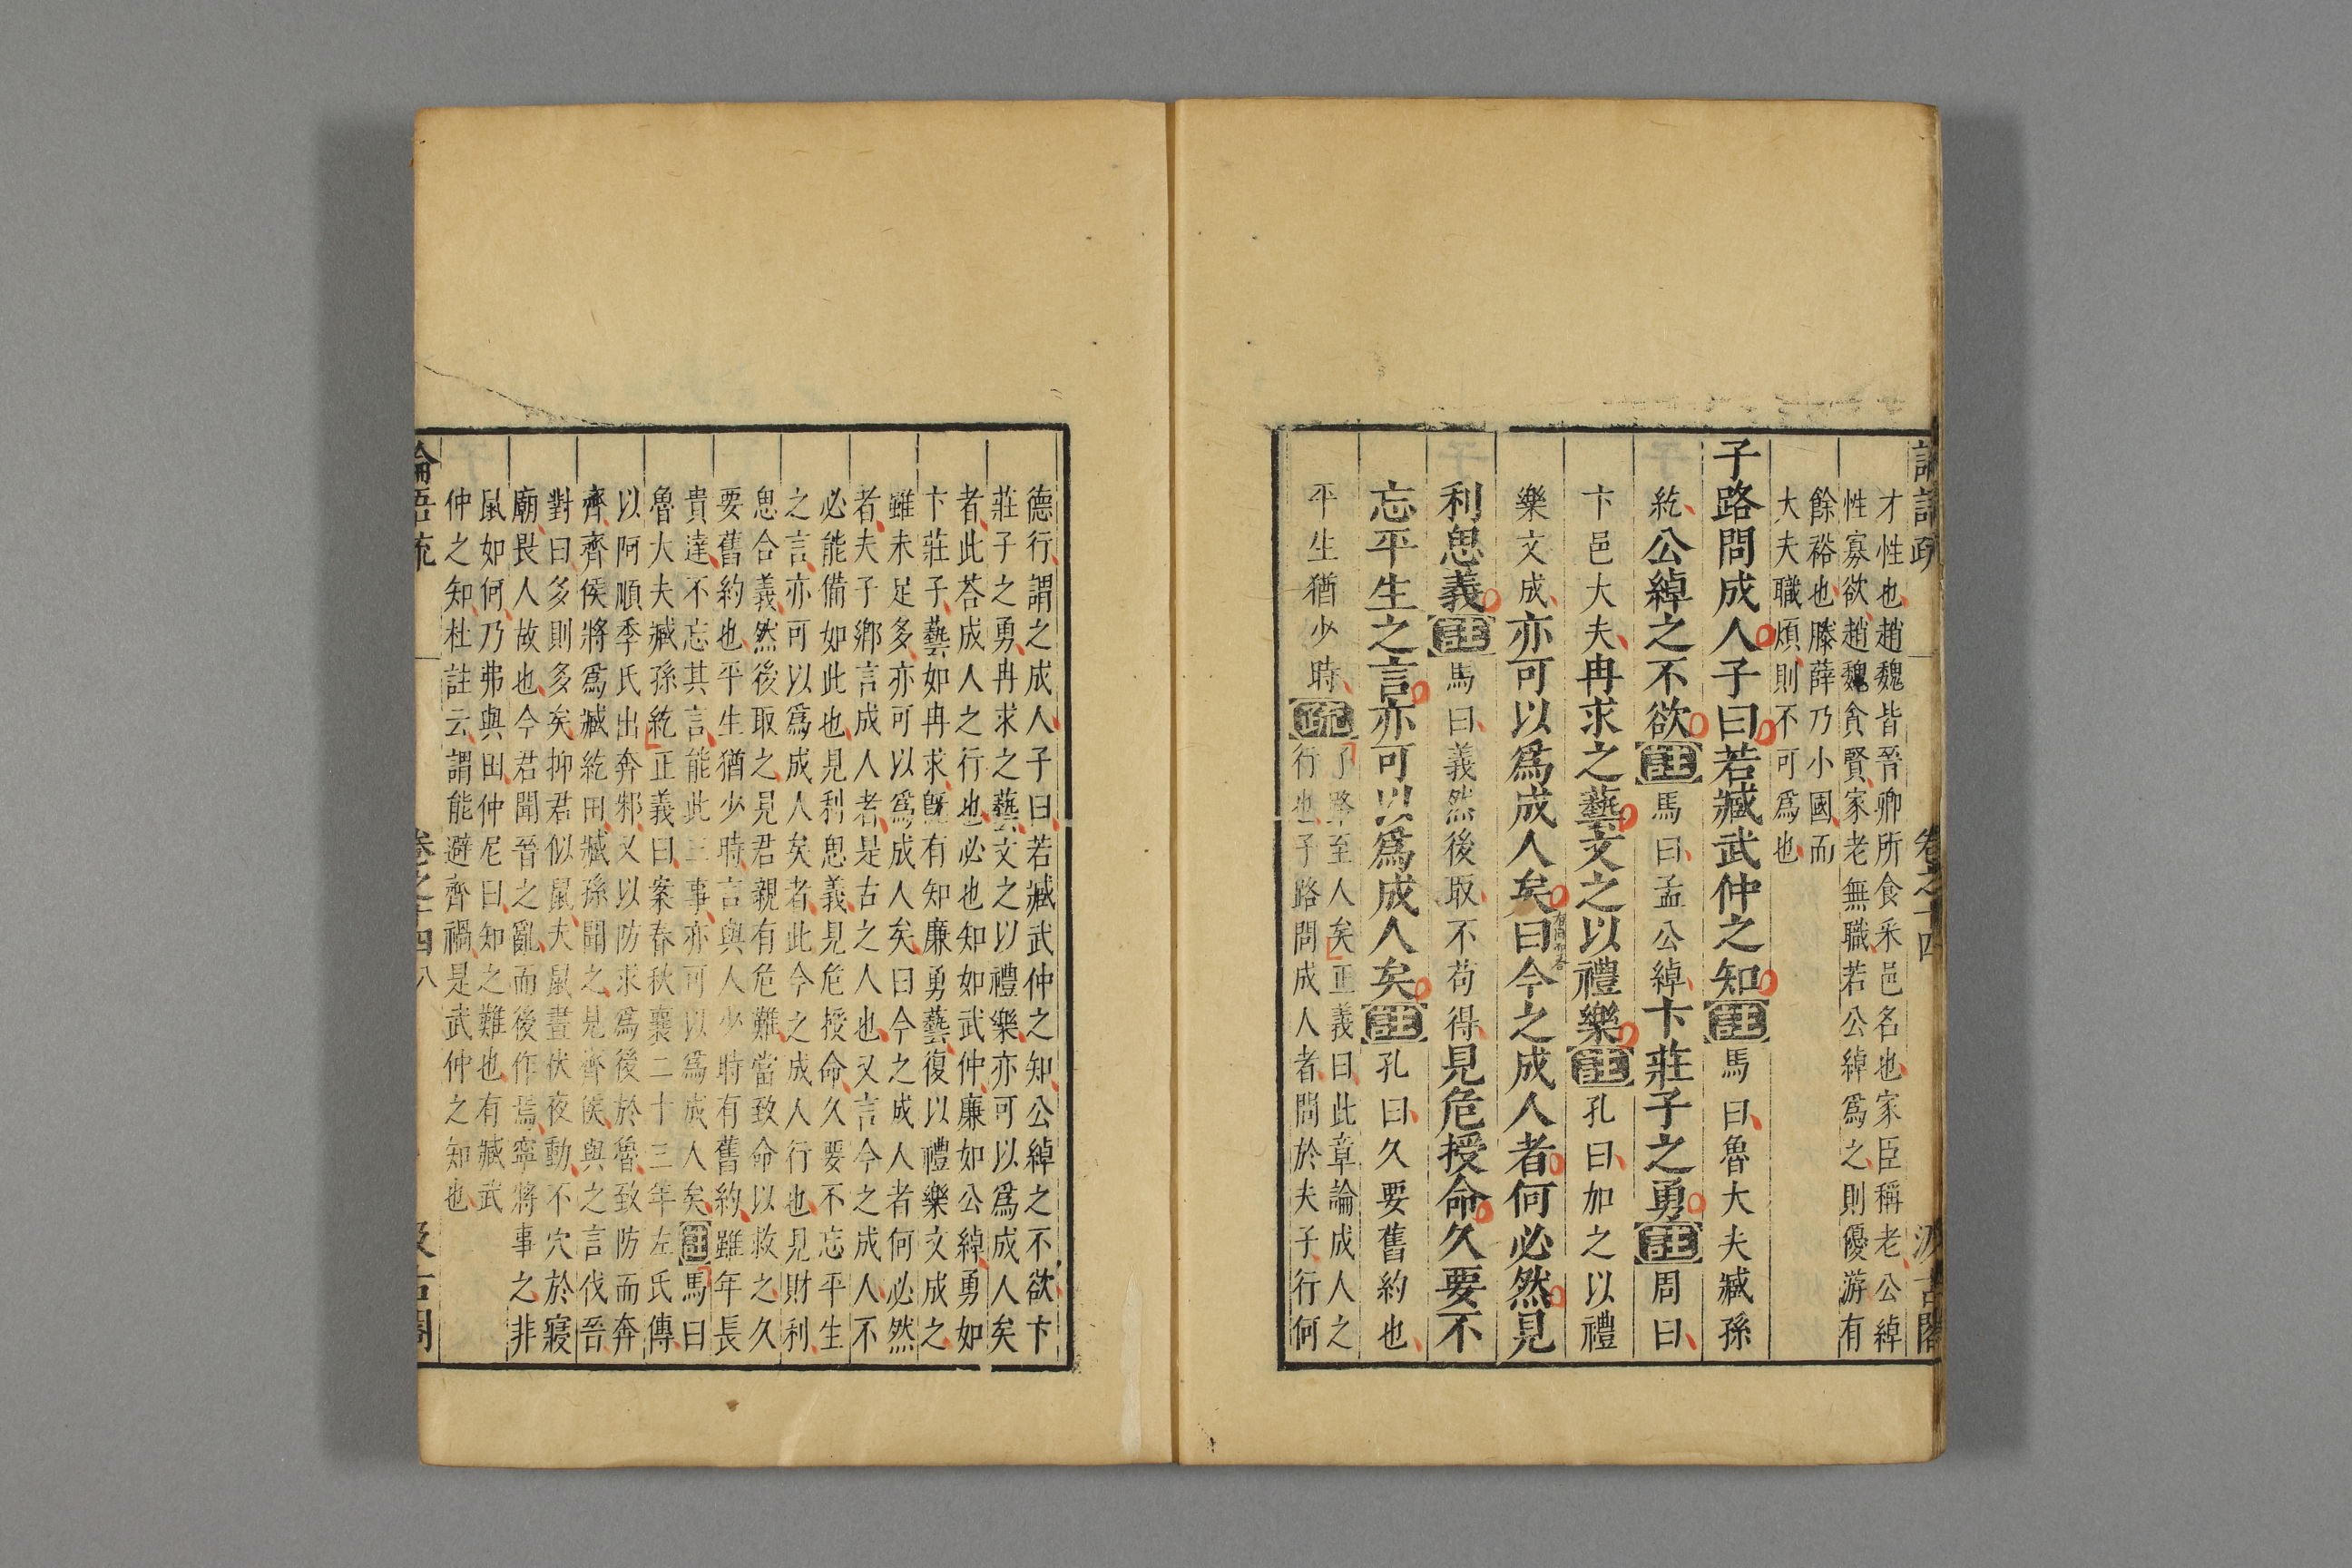 論語疏 卷之十四 汲古閣
才性也趙魏皆晉卿所食采邑名也家臣稱老公綽
性寡欲趙魏貪賢家老無職若公綽爲之則優游有
餘裕也滕薛乃小國而
大夫職煩則不可爲也
子路問成人子曰若臧武仲之知註馬曰魯大夫臧孫
紇公綽之不欲註馬曰孟公綽卞莊子之勇註周曰
卞邑大夫冉求之藝文之以禮樂註孔曰加之以禮
樂文成亦可以爲成人矣曰今之成人者何必然見
利思義註馬曰義然後取不苟得見危授命久要不
忘平生之言亦可以爲成人矣註孔曰久要舊約也
平生猶少時疏
子路至人矣正義曰此章論成人之
行也子路問成人者問於夫子行何
德行謂之成人子曰若臧武仲之知公綽之不欲卞
莊子之勇冉求之藝文之以禮樂亦可以爲成人矣
者此荅成人之行也必也知如武仲廉如公綽勇如
卞莊子藝如冉求旣有知廉勇藝復以禮樂文成之
雖未足多亦可以爲成人矣曰今之成人者何必然
者夫子鄉言成人者是古之人也又言今之成人不
必能備如此也見利思義見危授命久要不忘平生
之言亦可以爲成人矣者此今之成人行也見財利
思合義然後取之見君親有危難當致命以救之久
要舊約也平生猶少時言與人少時有舊約雖年長
貴達不忘其言能此三事亦可以爲成人矣註馬曰
魯大夫臧孫紇正義曰案春秋襄二十三年左氏傳
以阿順季氏出奔邾又以防求爲後於魯致防而奔
齊齊侯將爲臧紇田臧孫聞之見齊侯與之言伐晉
對曰多則多矣抑君似鼠夫鼠晝伏夜動不穴於寢
廟畏人故也今君聞晉之亂而後作焉寧將事之非
鼠如何乃弗與田仲尼曰知之難也有臧武
仲之知杜註云謂能避齊禍是武仲之知也
論語疏 卷之十四 八 汲古閣